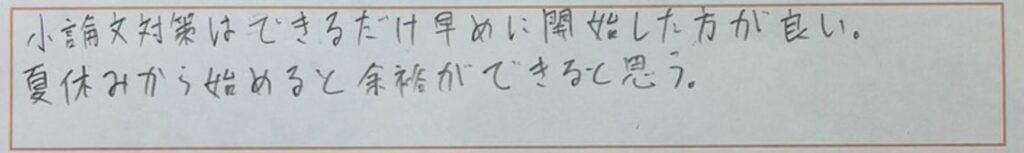 小論文対策はできるだけ早めに開始した方が良い。
夏休みから始めると余裕ができると思う。